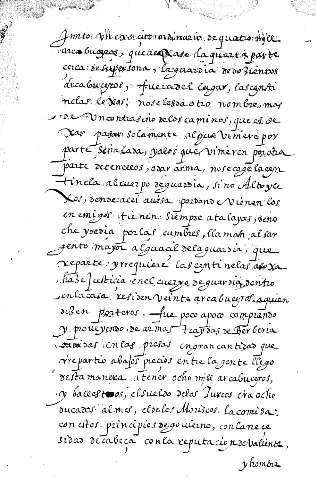 Junto Un exercito ordinario de quatro mill
arcabuzeros, que de ellos la quarta parte
cerca de su persona, la guardia de dozientos
arcabuzeros. fuera del lugar, las centi
nelas lexos; no se les da otro nombre, mas
de Un contraseño de los caminos, que es de
xar passar solamente al que Viniere por
parte señalada, y a los que Vinieren por otra
parte detenellos, o dar arma, no se coge la cen
tinela al cuerpo de guardia, sino Alto y le
xos, donde a el avisa por donde Vienen los
enemigos: tienen siempre atalayas, de no
che y de dia por las cumbres, llaman al sar
gento mayor alguacil de la guardia, que
reparte y requiere las centinelas
de Justicia en el cuerpo de guardia, dentro
en la casa residen Veinte arcabuzeros, a quien
dizen porteros. fue poco a poco comprando
y proveyendo de armas traydas de Berberia
en las presas en gran cantidad que
repartio a baxos precios entre la gente. llego
desta manera a tener ocho mill arcabuzeros,
y ballesteros, el sueldo de los Turcos era ocho
ducados al mes, el de los Moriscos la comida:
con estos principios de govierno, con la nece
sidad de cabeça con la reputacion de valiente,
y hombre